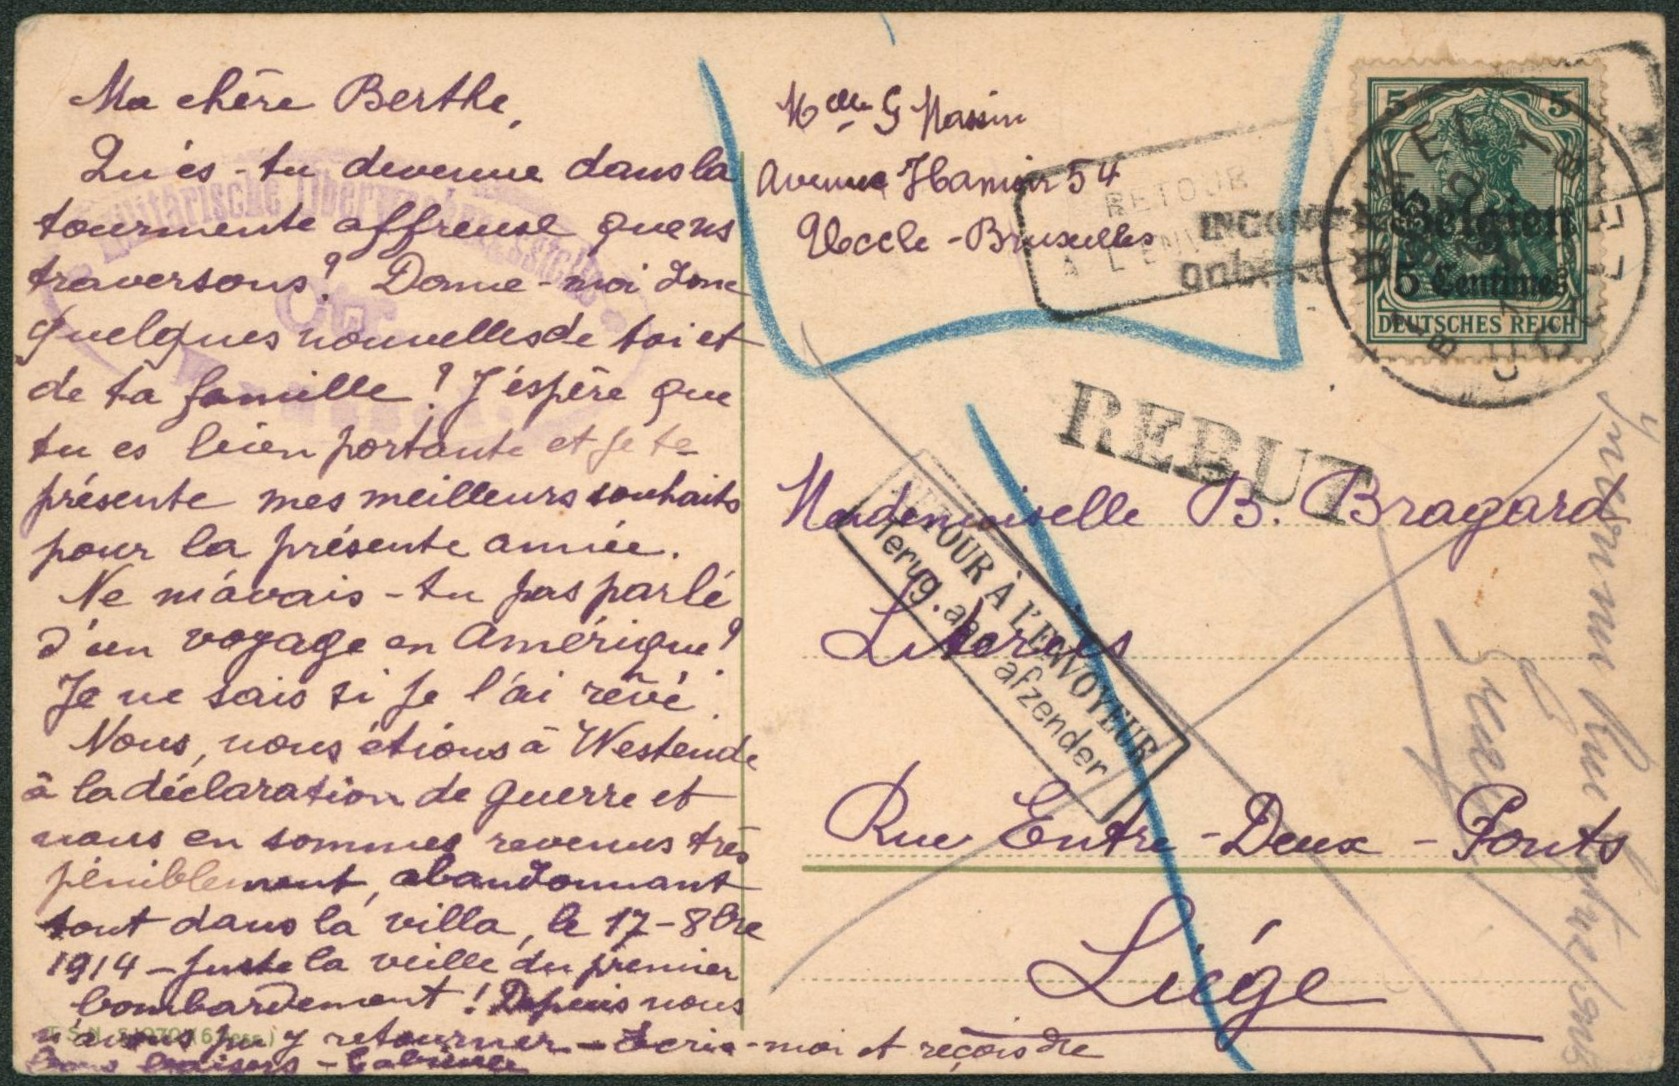 Ma chère Berthe,
Qu'es-tu devenue dans la
tourmente affreuse que ns
traversons? Donne-moi donc
quelques nouvelles de toi et
de ta famille! J'éspère que
tu es bien portante et je te
présente mes meilleurs souhaits
pour la présente année.
Ne m'avais-tu pas parlé
d'un voyage en Amérique?
Je ne sais si je l'ai rêvé.
Nous, nous étions à Westende
à la déclaration de guerre et
nous en sommes revenus très
péniblement, abandonnant
tout dans la villa, le 17-8bre
1914 - juste la veille du premier
bombardement! Depuis nous
n'avons pu y retourner - Écris-moi et reçois de
bons baisers - Gabrielle
Militärische Überwachungsstelle
Melle G Massin
Avenue Hamoir 54
Uccle - Bruxelles
RETOUR
A L'ENV
INCONNU
5 5
Belgien
5 Centimes
DEUTSCHES REICH
UKKEL
UCCLE
REBUT
Mademoiselle B. Bragard
RETOUR À L'ENVOYEUR
Terug aan afzender
Rue Entre-Deux-Ponts
Liége
Inconnu Rue Entre 2 ponts